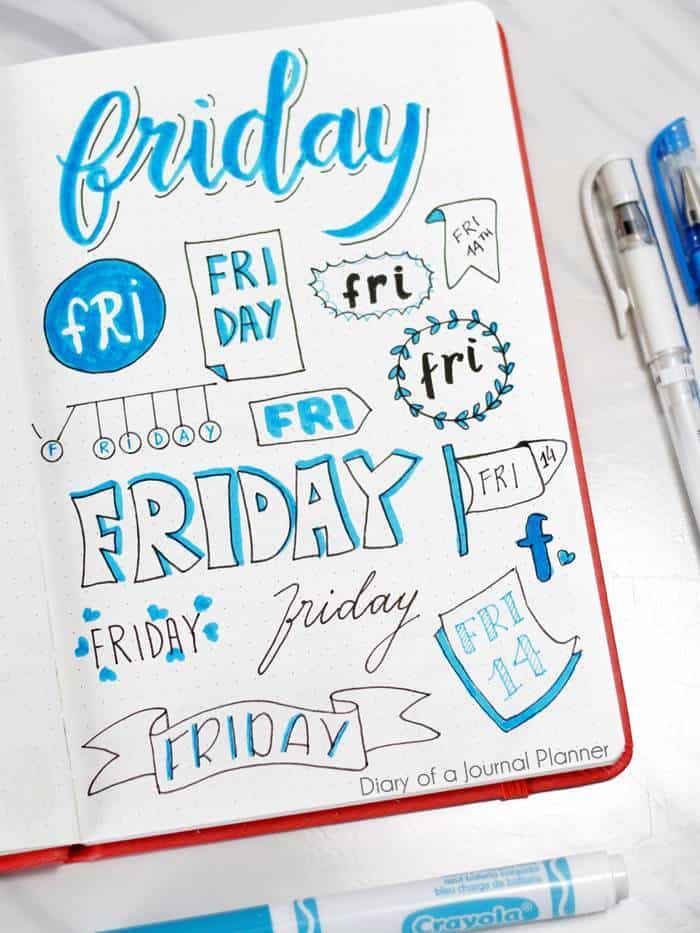 friday
FRI
14TH
fRi
FRI
DAY
fri
fri
FRIDAY
FRI
FRIDAY
FRI 14
f.
FRIDAY
friday
FRI
14
FRIDAY
Diary of a Journal Planner
bleu charge de batterie
Crayola